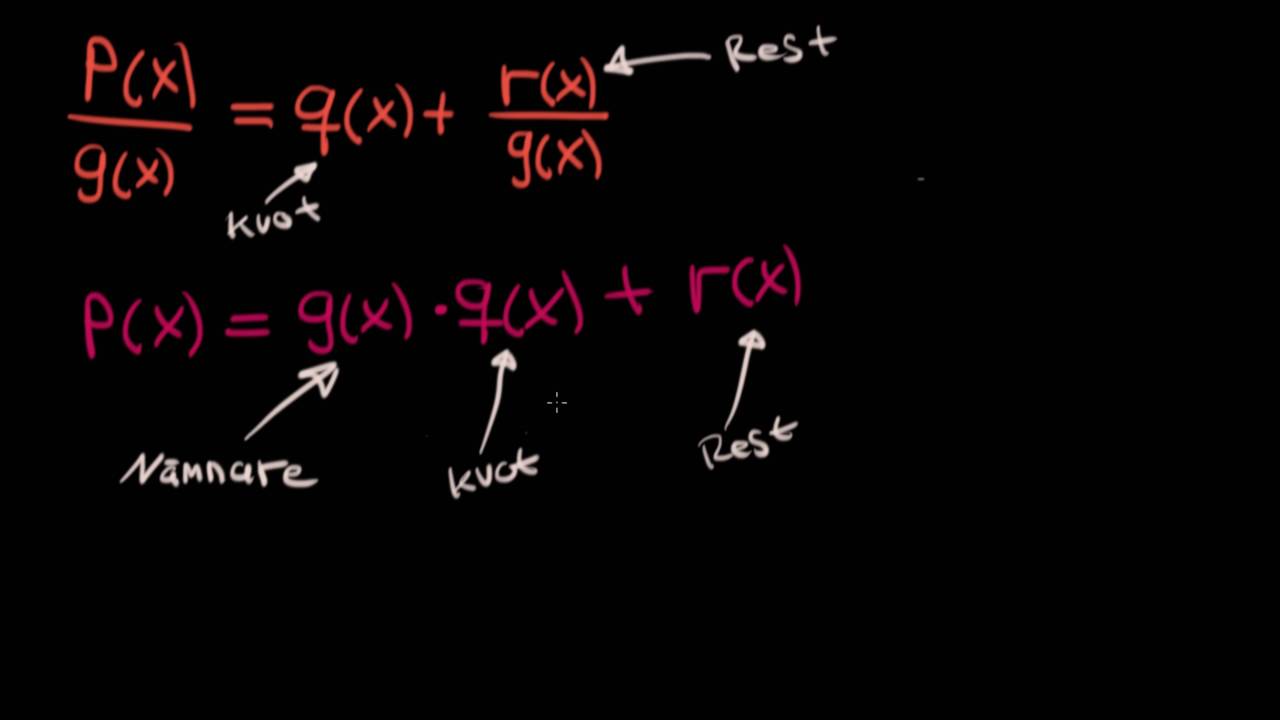 P(x)/g(x) = q(x) + r(x)/g(x) ← Rest
kvot
P(x) = g(x) · q(x) + r(x)
Nämnare kvot Rest